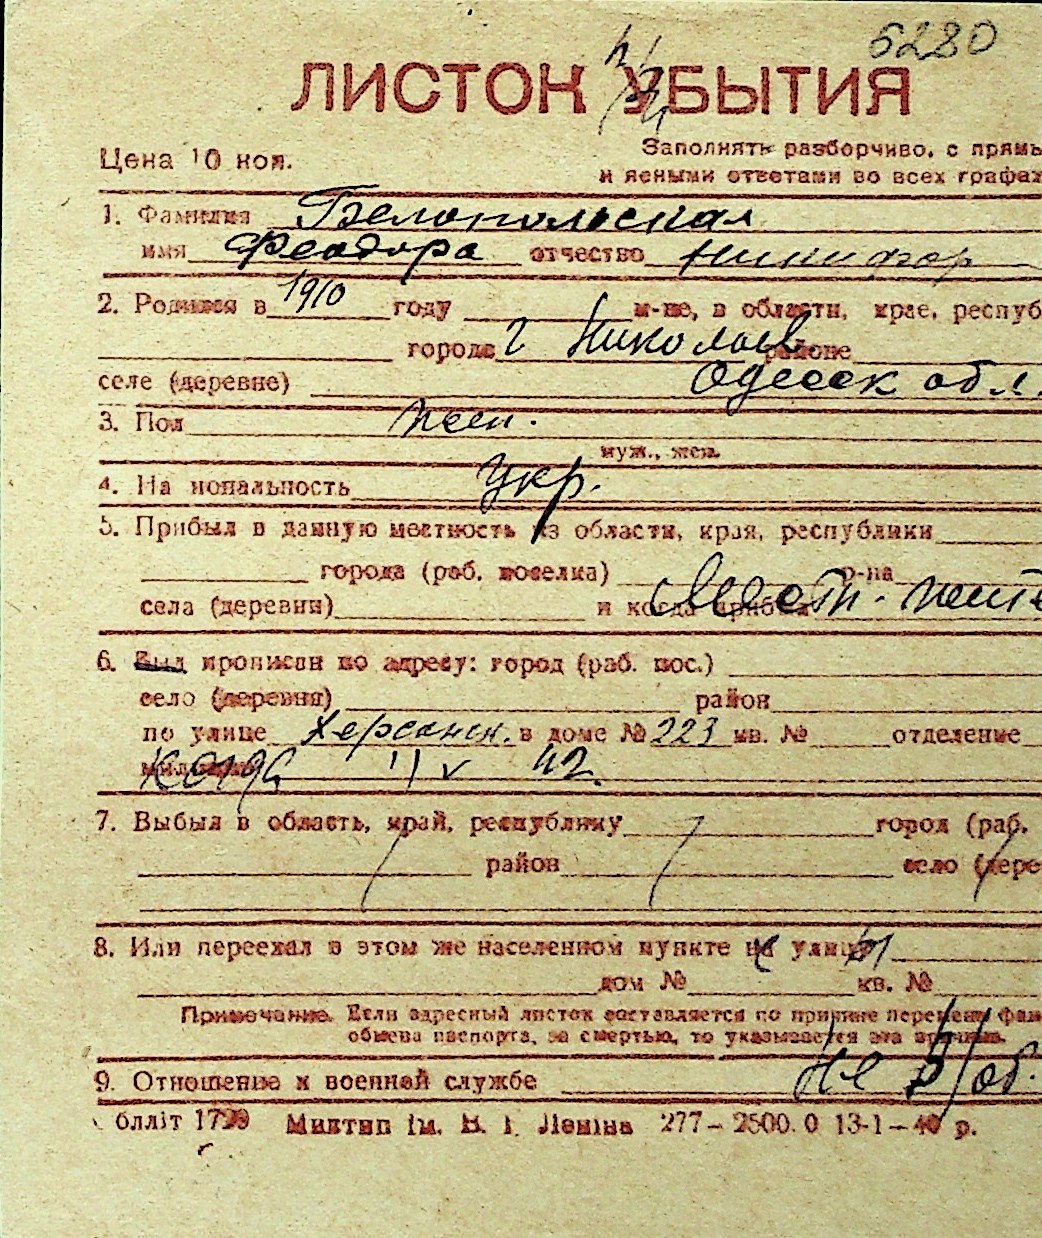 6280
ЛИСТОК УБЫТИЯ
Цена 10 коп.
Заполнять разборчиво, с прямы
и ясными ответами во всех графах
1. Фамилия Белопольская
имя Феодора отчество Никифор
2. Родился в 1910 году м-це, в области, крае, респуб
городе г Николаев районе
селе (деревне) Одесск обл.
3. Пол жен.
муж., жен.
4. На иональность укр.
5. Прибыл в данную местность из области, края, республики
города (раб. поселка) р-на
села (деревни) и когда прибыл Мест. жите
6. Был прописан по адресу: город (раб. пос.)
село (деревни) район
по улице Херсонск. в доме № 223 кв. № отделение
когда 11 v 42.
7. Выбыл в область, край, республику город (раб.
район село (дере
8. Или переехал в этом же населенном пункте на улицу
дом № кв. №
Примечание. Если адресный листок составляется по причине перемены фам
обмена паспорта, за смертью, то указывается эта причина.
9. Отношение к военной службе не в/об.
бліт 1799 Миктип ім. В. І. Леніна 277 – 2500. 0 13-1 – 40 р.